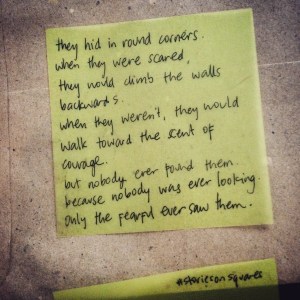 they hid in round corners.
when they were scared,
they would climb the walls
backwards.
when they weren't, they would
walk toward the scent of
courage.
but nobody ever found them
because nobody was ever looking.
only the fearful ever saw them.
#storiesonsquares